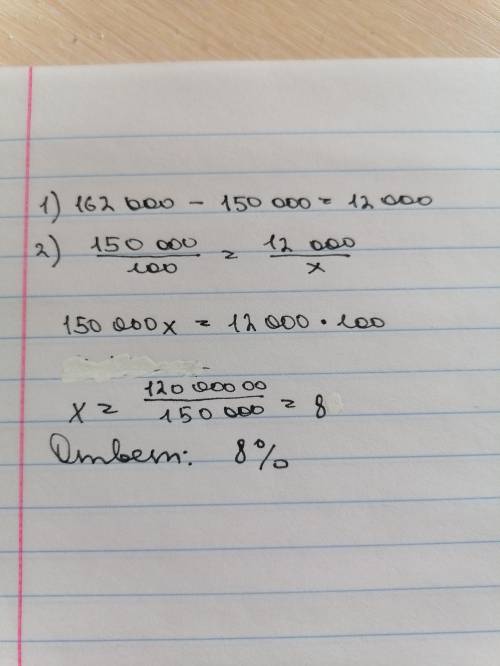 1) 162 000 - 150 000 = 12 000
2) 150 000 / 100 = 12 000 / x
150 000x = 12 000 · 100
x = 120 000 00 / 150 000 = 8
Ответ: 8%